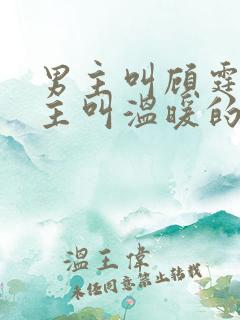 男主叫顾霆
主叫温暖的
溫王偉
未经同意禁止转载